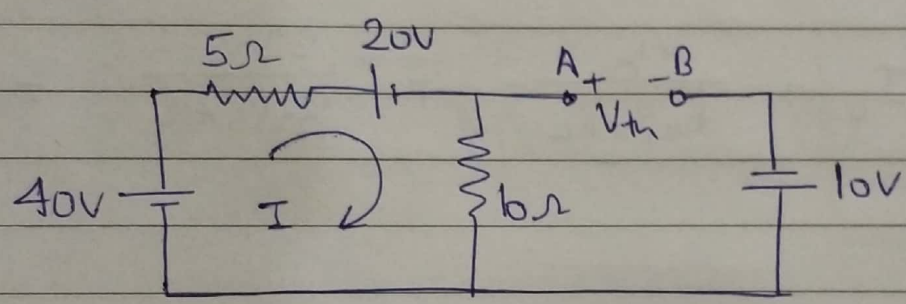 5Ω 20V
A + - B
Vth
40V I 10Ω 10V